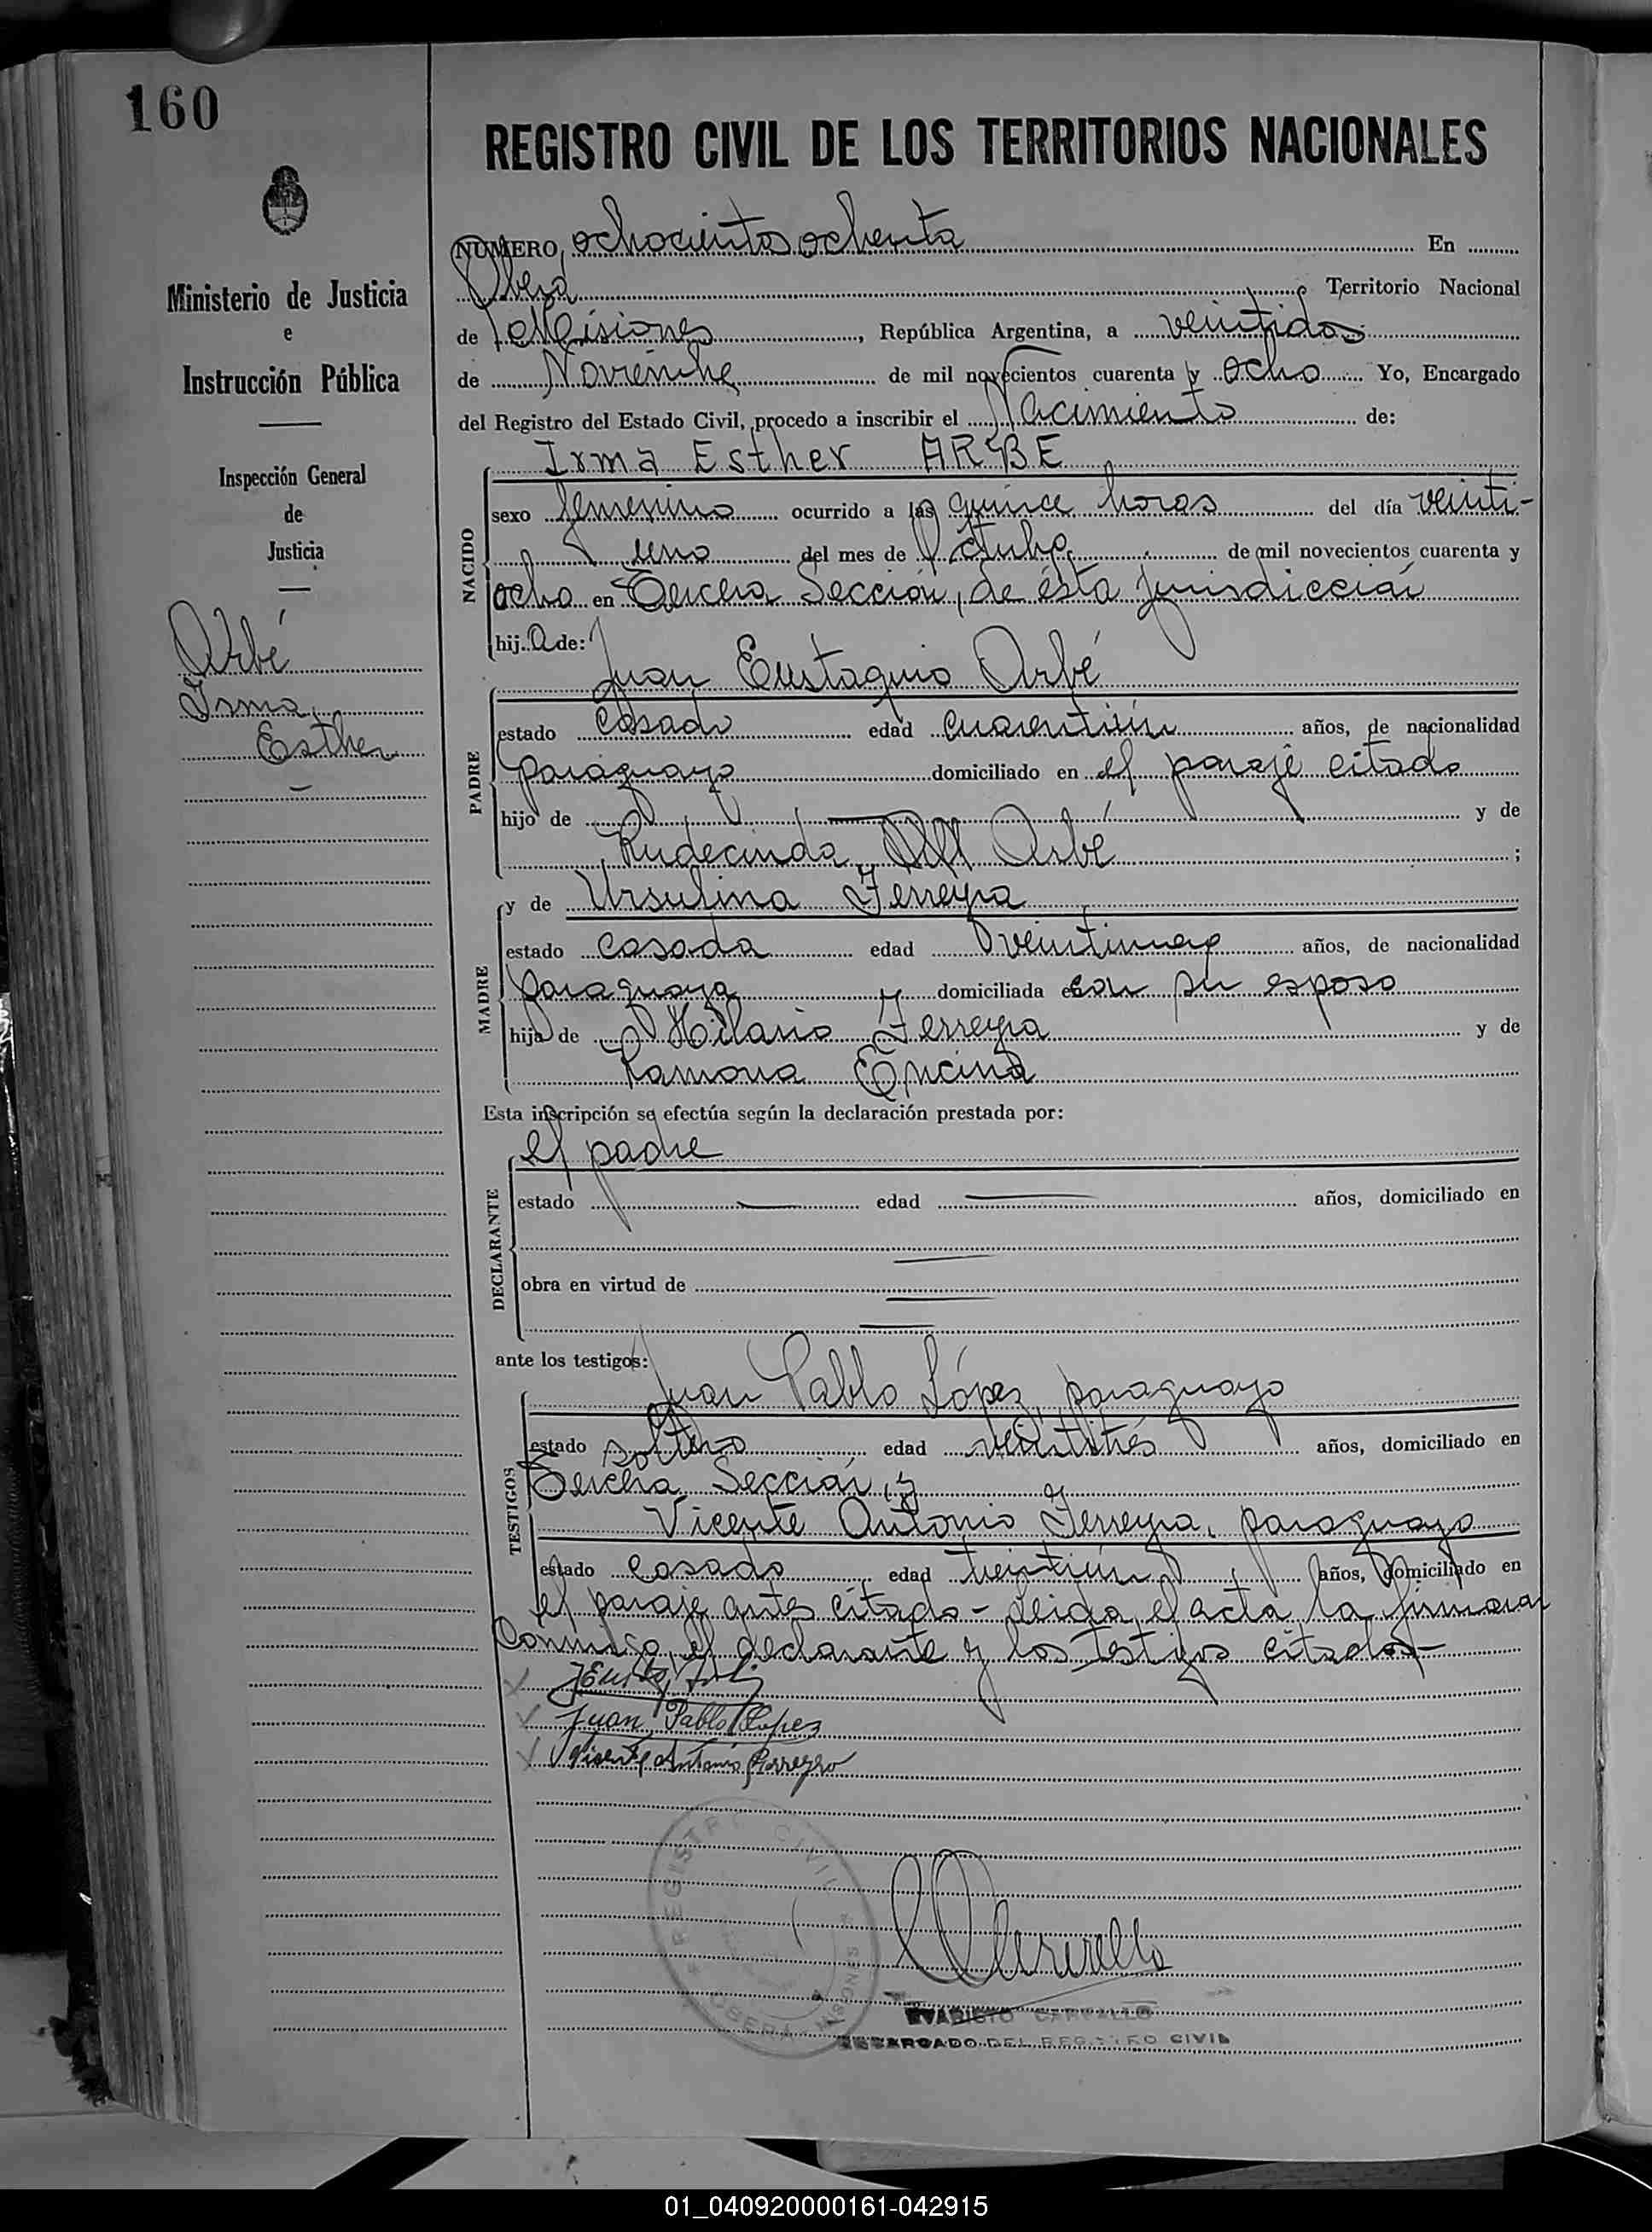 160
REGISTRO CIVIL DE LOS TERRITORIOS NACIONALES
Ministerio de Justicia
e
Instrucción Pública
Inspección General
de
Justicia
Arbé
Irma
Esther
NÚMERO ochocientos ochenta En
Oberá Territorio Nacional
de Misiones, República Argentina, a veintidos
de Noviembre de mil novecientos cuarenta y ocho Yo, Encargado
del Registro del Estado Civil, procedo a inscribir el Nacimiento de:
Irma Esther ARBE
NACIDO
sexo femenino ocurrido a las quince horas del día veinti-
uno del mes de Octubre de mil novecientos cuarenta y
ocho en Tercera Sección, de ésta jurisdicción
hij a de:
Juan Eustaquio Arbé
PADRE
estado casado edad cuarentiún años, de nacionalidad
paraguayo domiciliado en el paraje citado
hijo de y de
Rudecinda Arbé ;
y de Ursulina Ferreyra
MADRE
estado casada edad veintinueve años, de nacionalidad
paraguaya domiciliada con su esposo
hija de Hilario Ferreyra y de
Ramona Encina
Esta inscripción se efectúa según la declaración prestada por:
el padre
DECLARANTE
estado edad años, domiciliado en
obra en virtud de
ante los testigos:
Juan Pablo López, paraguayo
TESTIGOS
estado soltero edad veintitrés años, domiciliado en
Tercera Sección, y
Vicente Antonio Ferreyra, paraguayo
estado casado edad treintiún años, domiciliado en
el paraje antes citado - Leida el acta la firmaran
conmigo, el declarante y los testigos citados-
Juan Pablo Lopez
Visente Antonio Ferreyro
REGISTRO CIVIL
OBERA MISIONES
EVARISTO CARVALLO
ENCARGADO DEL REGISTRO CIVIL
01_040920000161-042915